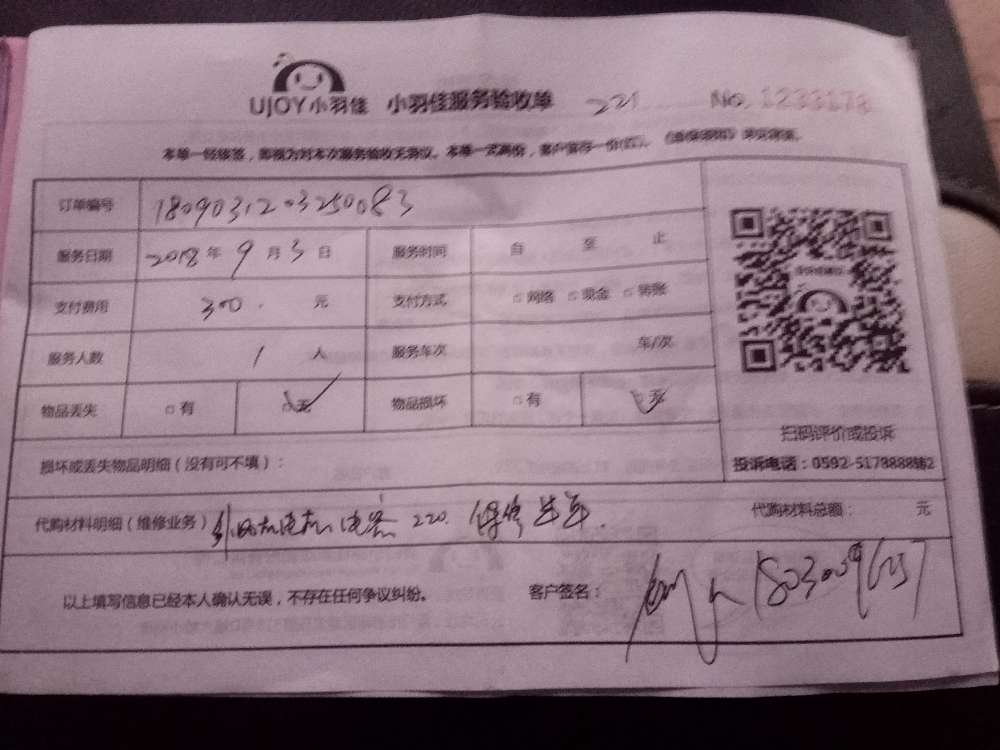 UJOY小羽佳 小羽佳服务验收单 221 No. 1233178
本单一经接签,即视为对本次服务验收无异议。本单一式两份,客户留存一份(页)。
订单编号 1809031203250083
服务日期 2018年9月3日 服务时间 自 至 止
支付费用 300. 元 支付方式 □网络 □现金 □转账
服务人数 1 人 服务车次 车/次
物品丢失 □有 □无 物品损坏 □有 □无
扫码评价或投诉
损坏或丢失物品明细(没有可不填):
投诉电话:0592-5178888转2
代购材料明细(维修业务) 220. 保修半年. 代购材料总额: 元
以上填写信息已经本人确认无误,不存在任何争议纠纷。 客户签名: